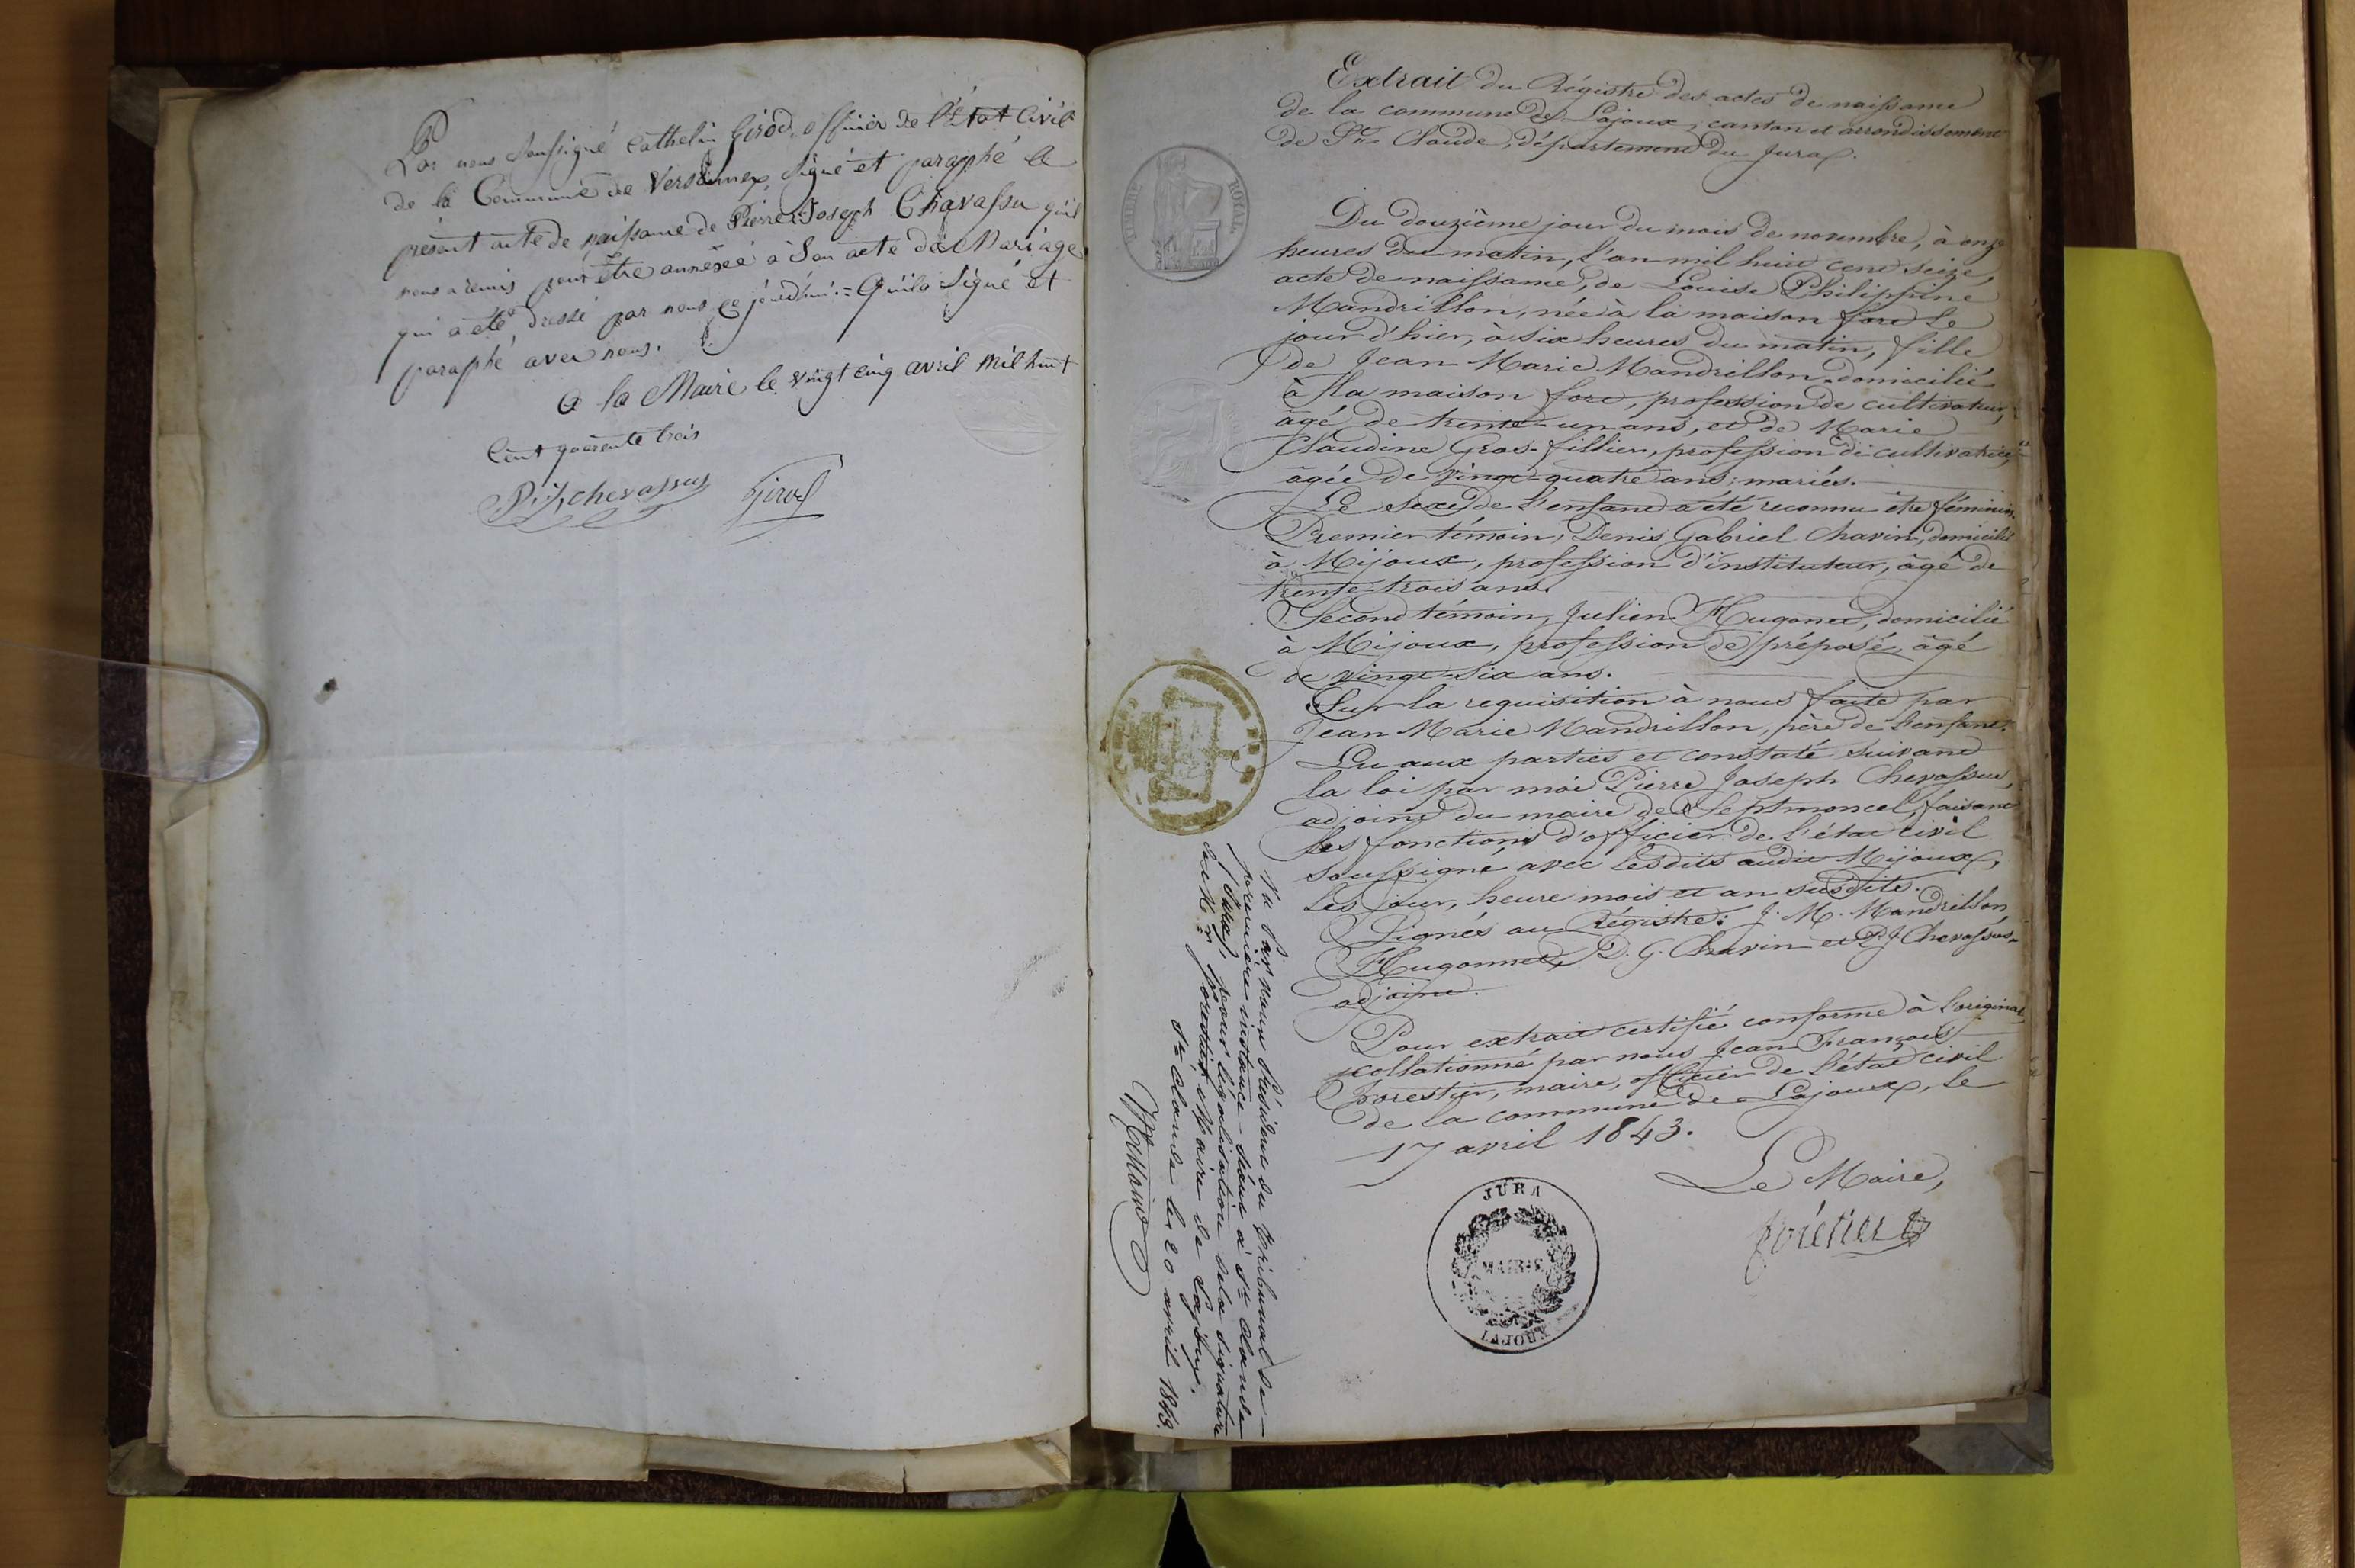 Par nous soussigné Cathelin Girod, officier de l'État Civil
de la Commune de Versonnex, signé et paraphé le
présent acte de naissance de Pierre Joseph Chavassu qu'il
nous a remis pour être annexée à son acte de Mariage
qui a été dressé par nous ce jourd'hui = Qu'il a Signé et
paraphé avec nous.
A la Mairie le vingt cinq avril mil huit
Cent quarente trois
P. J. chevassus Girod
Extrait du Régistre des actes de naissance
de la commune de Lajoux, canton et arrondissement
de St. Claude, département du Jura.
TIMBRE ROYAL
Du douzième jour du mois de novembre, à onze
heures du matin, l'an mil huit cent seize,
acte de naissance, de Louise Philippine
Mandrillon, née à la maison fort le
jour d'hier, à six heures du matin, fille
de Jean Marie Mandrillon domicilié
à la maison fort, profession de cultivateur,
âgé de trente-un ans, et de Marie
Claudine Gros-fillier, profession de cultivatrice,
âgée de vingt-quatre ans; mariés.
Le sexe de l'enfant a été reconnu être féminin.
Premier témoin, Denis Gabriel Chavin, domicilié
à Mijoux, profession d'instituteur, âgé de
trente-trois ans.
Second témoin, Julien Hugonet, domicilié
à Mijoux, profession de préposé, âgé
de vingt-six ans.
Sur la requisition à nous faite par
Jean Marie Mandrillon, père de l'enfant.
Lu aux parties et constaté suivant
la loi par moi Pierre Joseph Chevassus,
adjoint du maire de Septmoncel, faisant
les fonctions d'officier de l'état civil
soussigné avec lesdits audit Mijoux,
les jour, heure mois et an susdits.
Signés au Régistre: J. M. Mandrillon,
Hugonnet, D. G. Chavin et P. J. Chevassus,
adjoint.
Pour extrait certifié conforme à l'original,
collationné par nous Jean François
Forestier, maire, officier de l'état civil
de la commune de Lajoux, le
17 avril 1843.
Le Maire,
forétier
JURA
MAIRIE
LAJOUX
Vu Par nous Président du tribunal de
première instance séant à St. Claude
Jura, pour légalisation de la signature
de Mr. forestier, Maire de Lajoux.
St. Claude le 20 avril 1843.